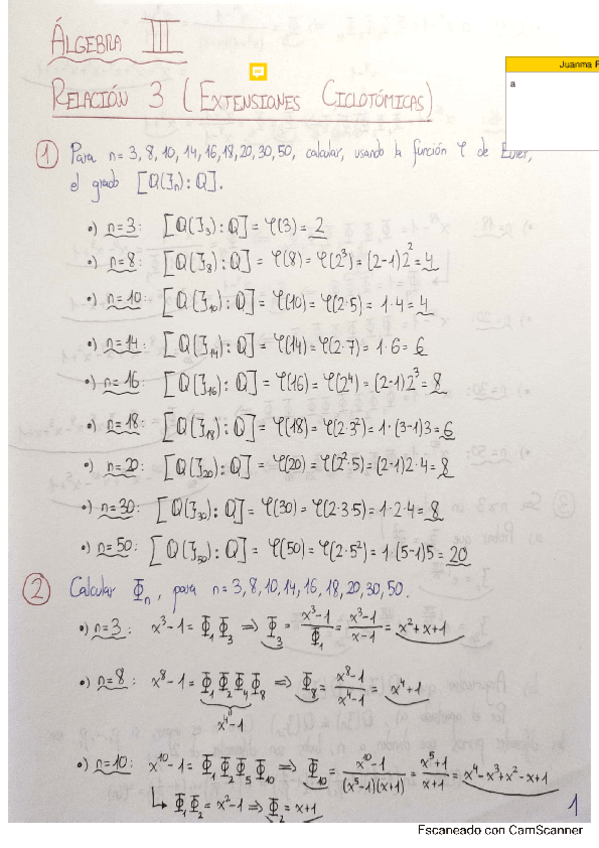 ÁLGEBRA III
Juanma F
a
RELACIÓN 3 (EXTENSIONES CICLOTÓMICAS)
① Para n=3,8,10,14,16,18,20,30,50, calcular, usando la función φ de Euler,
el grado [Q(ξₙ):Q].
•) n=3: [Q(ξ₃):Q] = φ(3) = 2
•) n=8: [Q(ξ₈):Q] = φ(8) = φ(2³) = (2-1)2² = 4
•) n=10: [Q(ξ₁₀):Q] = φ(10) = φ(2·5) = 1·4 = 4
•) n=14: [Q(ξ₁₄):Q] = φ(14) = φ(2·7) = 1·6 = 6
•) n=16: [Q(ξ₁₆):Q] = φ(16) = φ(2⁴) = (2-1)2³ = 8
•) n=18: [Q(ξ₁₈):Q] = φ(18) = φ(2·3²) = 1·(3-1)3 = 6
•) n=20: [Q(ξ₂₀):Q] = φ(20) = φ(2²·5) = (2-1)2·4 = 8
•) n=30: [Q(ξ₃₀):Q] = φ(30) = φ(2·3·5) = 1·2·4 = 8
•) n=50: [Q(ξ₅₀):Q] = φ(50) = φ(2·5²) = 1·(5-1)5 = 20
② Calcular Φₙ, para n=3,8,10,14,16,18,20,30,50.
•) n=3: x³-1 = Φ₁Φ₃ ⇒ Φ₃ = (x³-1)/Φ₁ = (x³-1)/(x-1) = x²+x+1
•) n=8: x⁸-1 = Φ₁Φ₂Φ₄Φ₈ ⇒ Φ₈ = (x⁸-1)/(x⁴-1) = x⁴+1
x⁴-1
•) n=10: x¹⁰-1 = Φ₁Φ₂Φ₅Φ₁₀ ⇒ Φ₁₀ = (x¹⁰-1)/((x⁵-1)(x+1)) = (x⁵+1)/(x+1) = x⁴-x³+x²-x+1
↳ Φ₁Φ₂ = x²-1 ⇒ Φ₂ = x+1
1
Escaneado con CamScanner